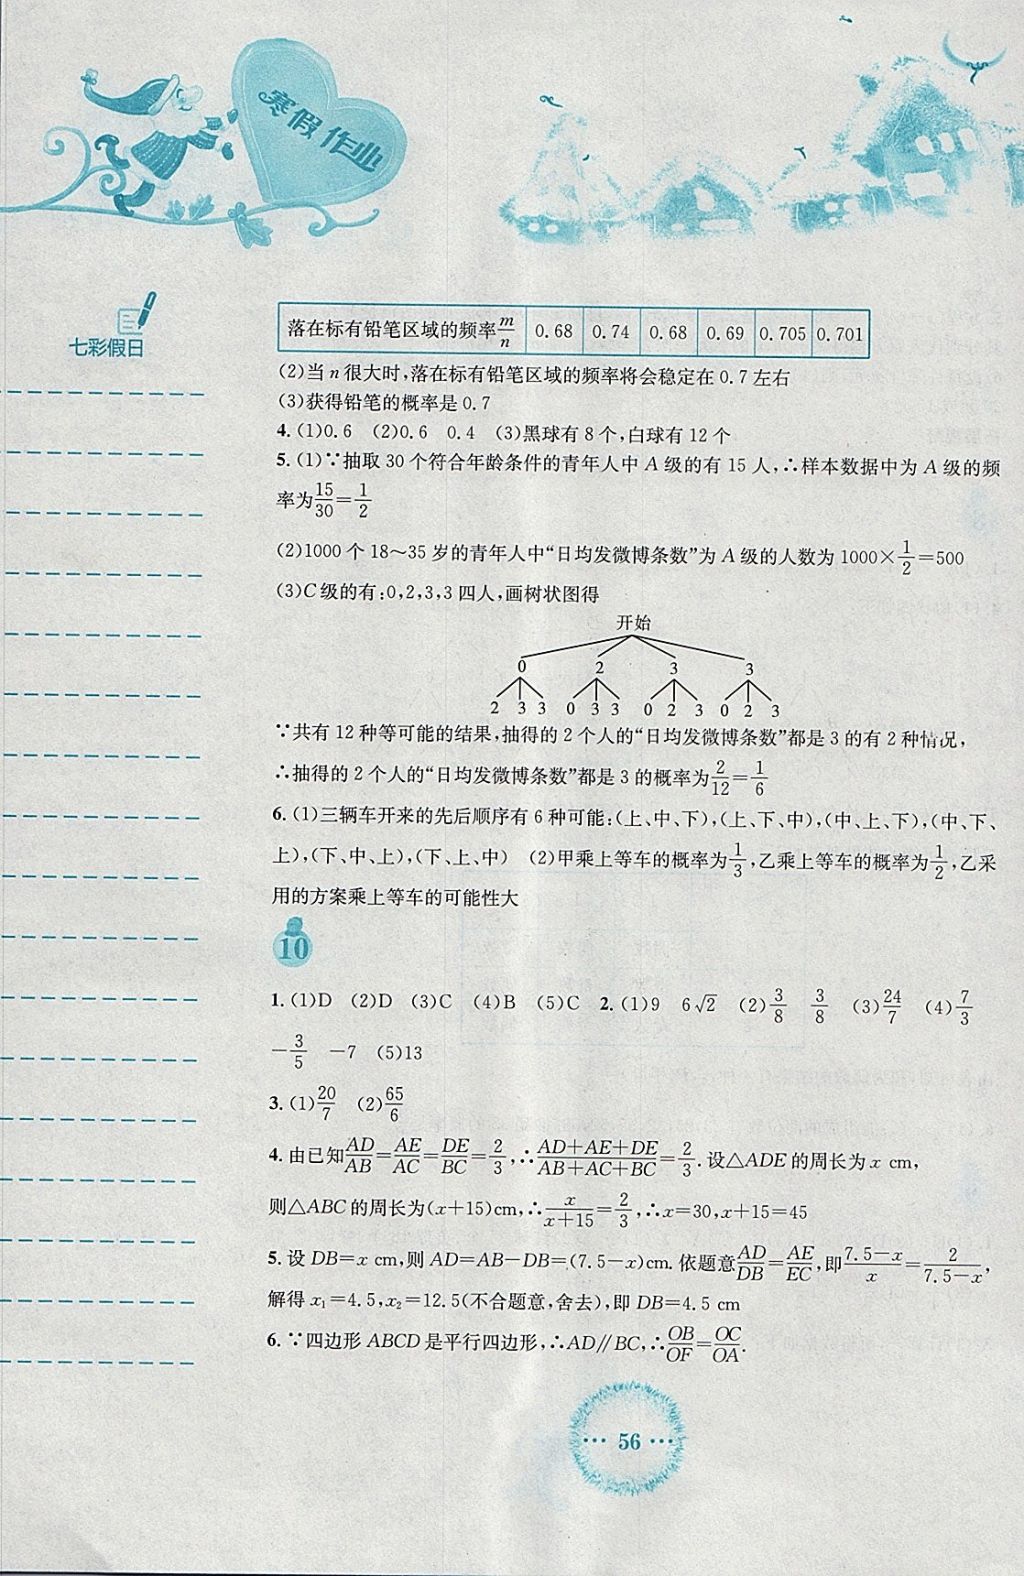 寒假作业
七彩假日
落在标有铅笔区域的频率m/n 0.68 0.74 0.68 0.69 0.705 0.701
(2)当 n 很大时,落在标有铅笔区域的频率将会稳定在 0.7 左右
(3)获得铅笔的概率是 0.7
4.(1)0.6 (2)0.6 0.4 (3)黑球有 8 个,白球有 12 个
5.(1)∵抽取 30 个符合年龄条件的青年人中 A 级的有 15 人,∴样本数据中为 A 级的频
率为15/30=1/2
(2)1000 个 18～35 岁的青年人中“日均发微博条数”为 A 级的人数为 1000×1/2=500
(3)C 级的有:0,2,3,3 四人,画树状图得
开始
0 2 3 3
2 3 3 0 3 3 0 2 3 0 2 3
∵共有 12 种等可能的结果,抽得的 2 个人的“日均发微博条数”都是 3 的有 2 种情况,
∴抽得的 2 个人的“日均发微博条数”都是 3 的概率为2/12=1/6
6.(1)三辆车开来的先后顺序有 6 种可能:(上、中、下),(上、下、中),(中、上、下),(中、下、
上),(下、中、上),(下、上、中) (2)甲乘上等车的概率为1/3,乙乘上等车的概率为1/2,乙采
用的方案乘上等车的可能性大
10
1.(1)D (2)D (3)C (4)B (5)C 2.(1)9 6√2 (2)3/8 3/8 (3)24/7 (4)7/3
-3/5 -7 (5)13
3.(1)20/7 (2)65/6
4.由已知AD/AB=AE/AC=DE/BC=2/3,∴(AD+AE+DE)/(AB+AC+BC)=2/3.设△ADE的周长为 x cm,
则△ABC的周长为(x+15)cm,∴x/(x+15)=2/3,∴x=30,x+15=45
5.设 DB=x cm,则 AD=AB-DB=(7.5-x)cm.依题意AD/DB=AE/EC,即(7.5-x)/x=2/(7.5-x),
解得 x₁=4.5,x₂=12.5(不合题意,舍去),即 DB=4.5 cm
6.∵四边形 ABCD 是平行四边形,∴AD∥BC,∴OB/OF=OC/OA.
··· 56 ···